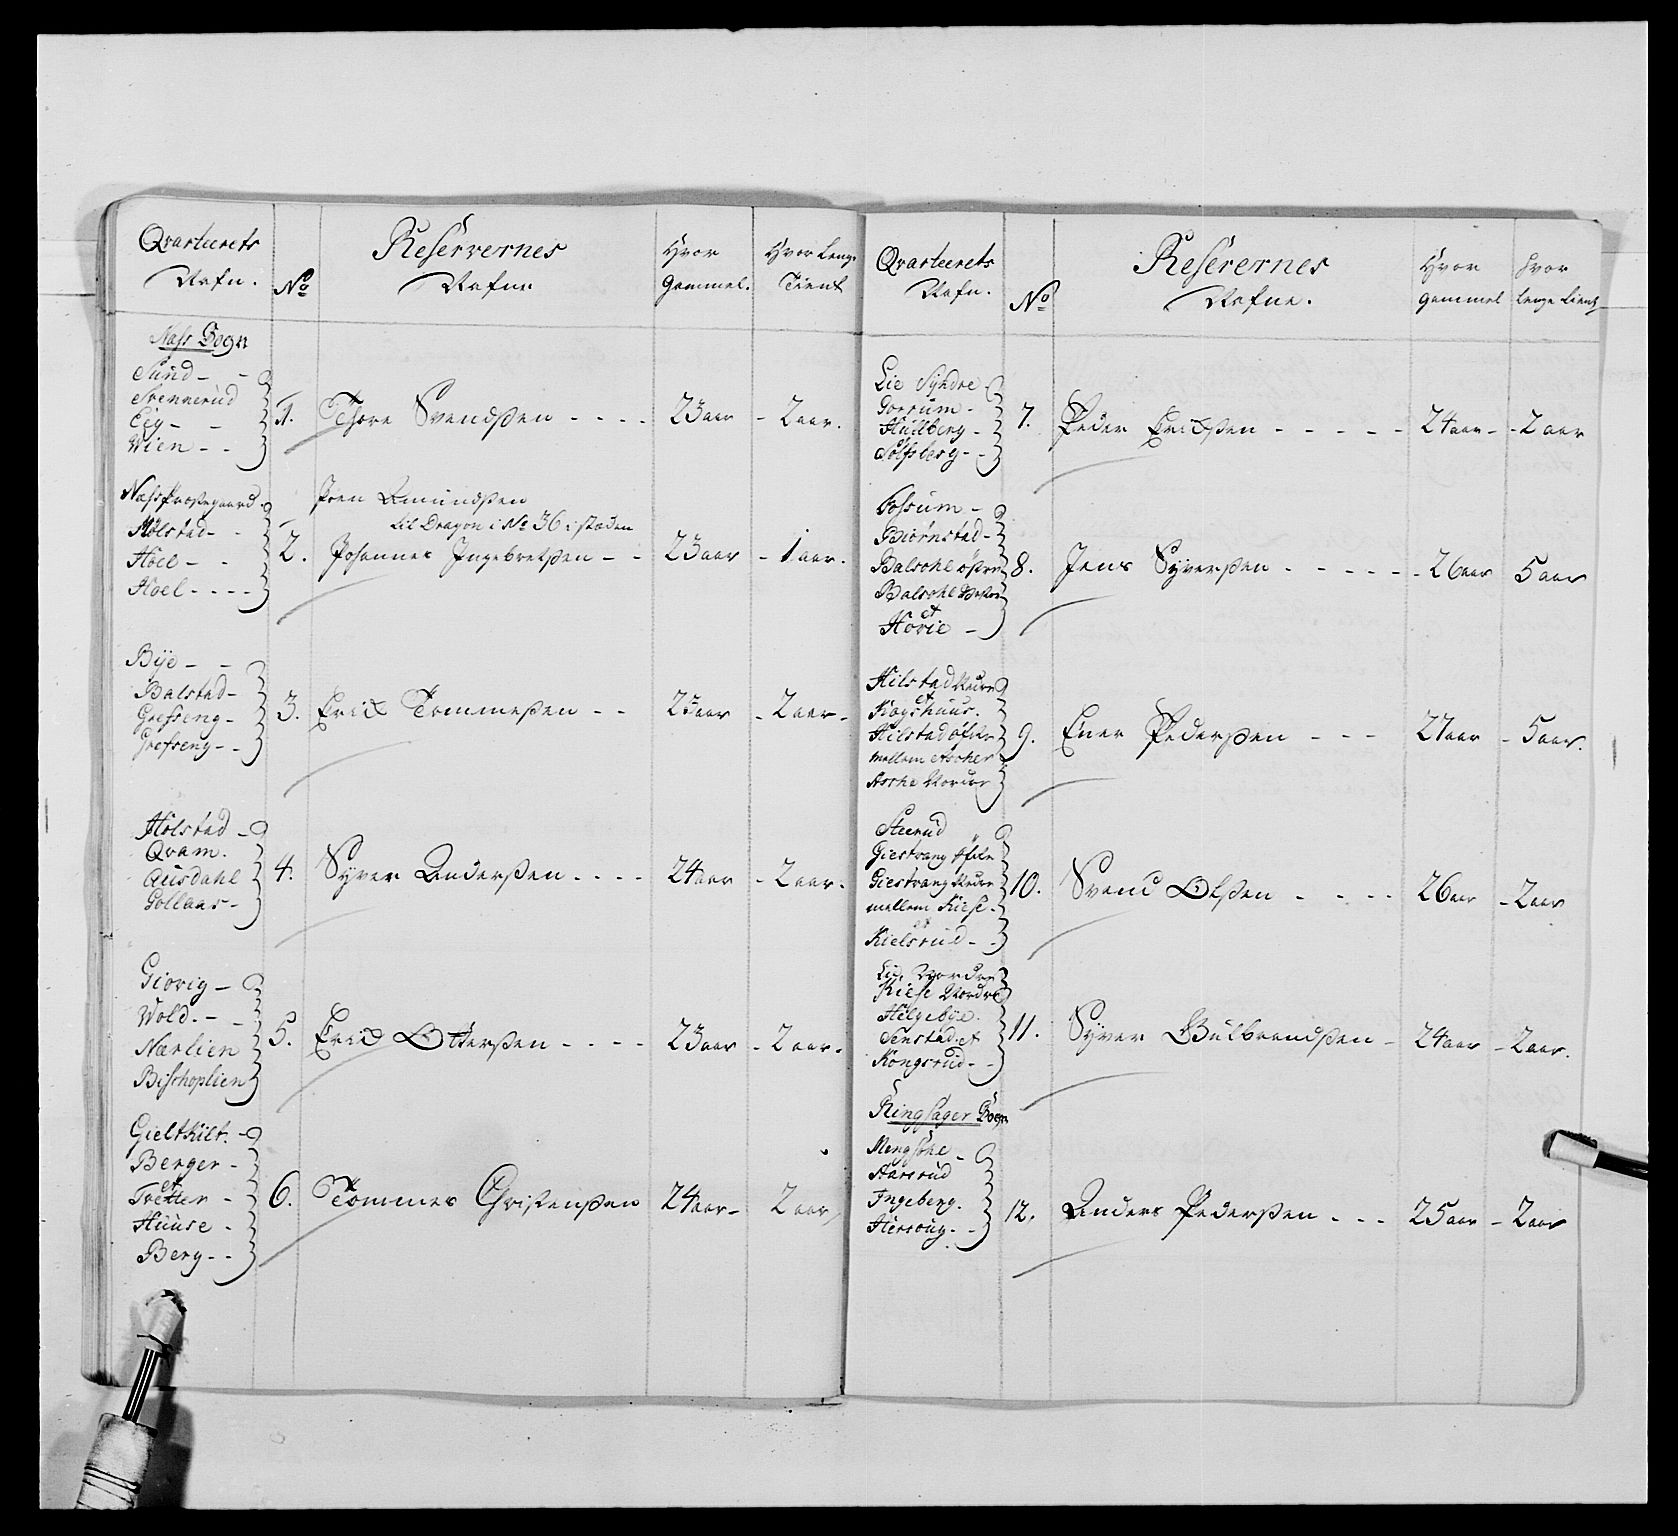 Qvarteerets
Nafn.
No
Reservernes
Nafne
Hvor
Gammel.
Hvor Lenge
Tient
Nass Sogn
Sund - -
Svennerud
Eeg - -
Wien - -
1. Thore Svendßen - - - - 23 aar - 2 aar.
Nass Præstegaard
Mølstad - -
Hoel - -
Hoel - - - -
Joen Amundßen
til Dragon i No 36 i stæden
2. Johannes Ingebretßen - - 23 aar - 1 aar.
Bye - -
Balstad -
Grefseng -
Grefseng - -
3. Erick Tommeßen - - 23 aar - 2 aar -
Hølstad -
Qvam.
Ausdahl
Gollaas -
4. Syver Anderßen - - - - 24 aar - 2 aar.
Giovig -
Wold. - -
Nærlien
Bisshoplien
5. Erick Otterßen - - - - 23 aar - 2 aar.
Gielthilt. -
Berger -
et
Tretter -
Huuse -
Berg - -
6. Tommes Christenßen 24 aar - 2 aar
Qvarteerets
Nafn.
No
Reserernes
Nafne.
Hvor
Gammel
Hvor
lenge tient
Lie Syndre
Gorrum -
Hullberg -
Solfsberg - -
7. Peder Erickßen - - - - - 24 aar - - 2 aar
Fossum -
Biørnstad -
Balsohl østre
Balsohl Vestre
et
Hovie -
8. Jens Syverßen - - - - - - 26 aar 5 aar
Hilstad Nedre
et
Kogshuus.
Hilstad Øfre
mellem Ascher
Asche Nordre
9. Ener Pederßen - - - 27 aar - 5 aar.
Steerud
Giestvang Øfre
Giestvang Nedre
mellem Kiese -
et
Kielsrud - -
10. Svend Olßen - - - - 26 aar - 2 aar
Lie Nordre
Kiese Nordre
Helgeböe.
Tenstad et
Kongsrud - -
11. Syver Gulbrandßen - 24 aar - 2 aar.
Ringsager Sogn
Mengshoe -
Aarsrud
Ingeberg.
Hersoug - -
12. Anders Pederßen - - - 25 aar - 2 aar